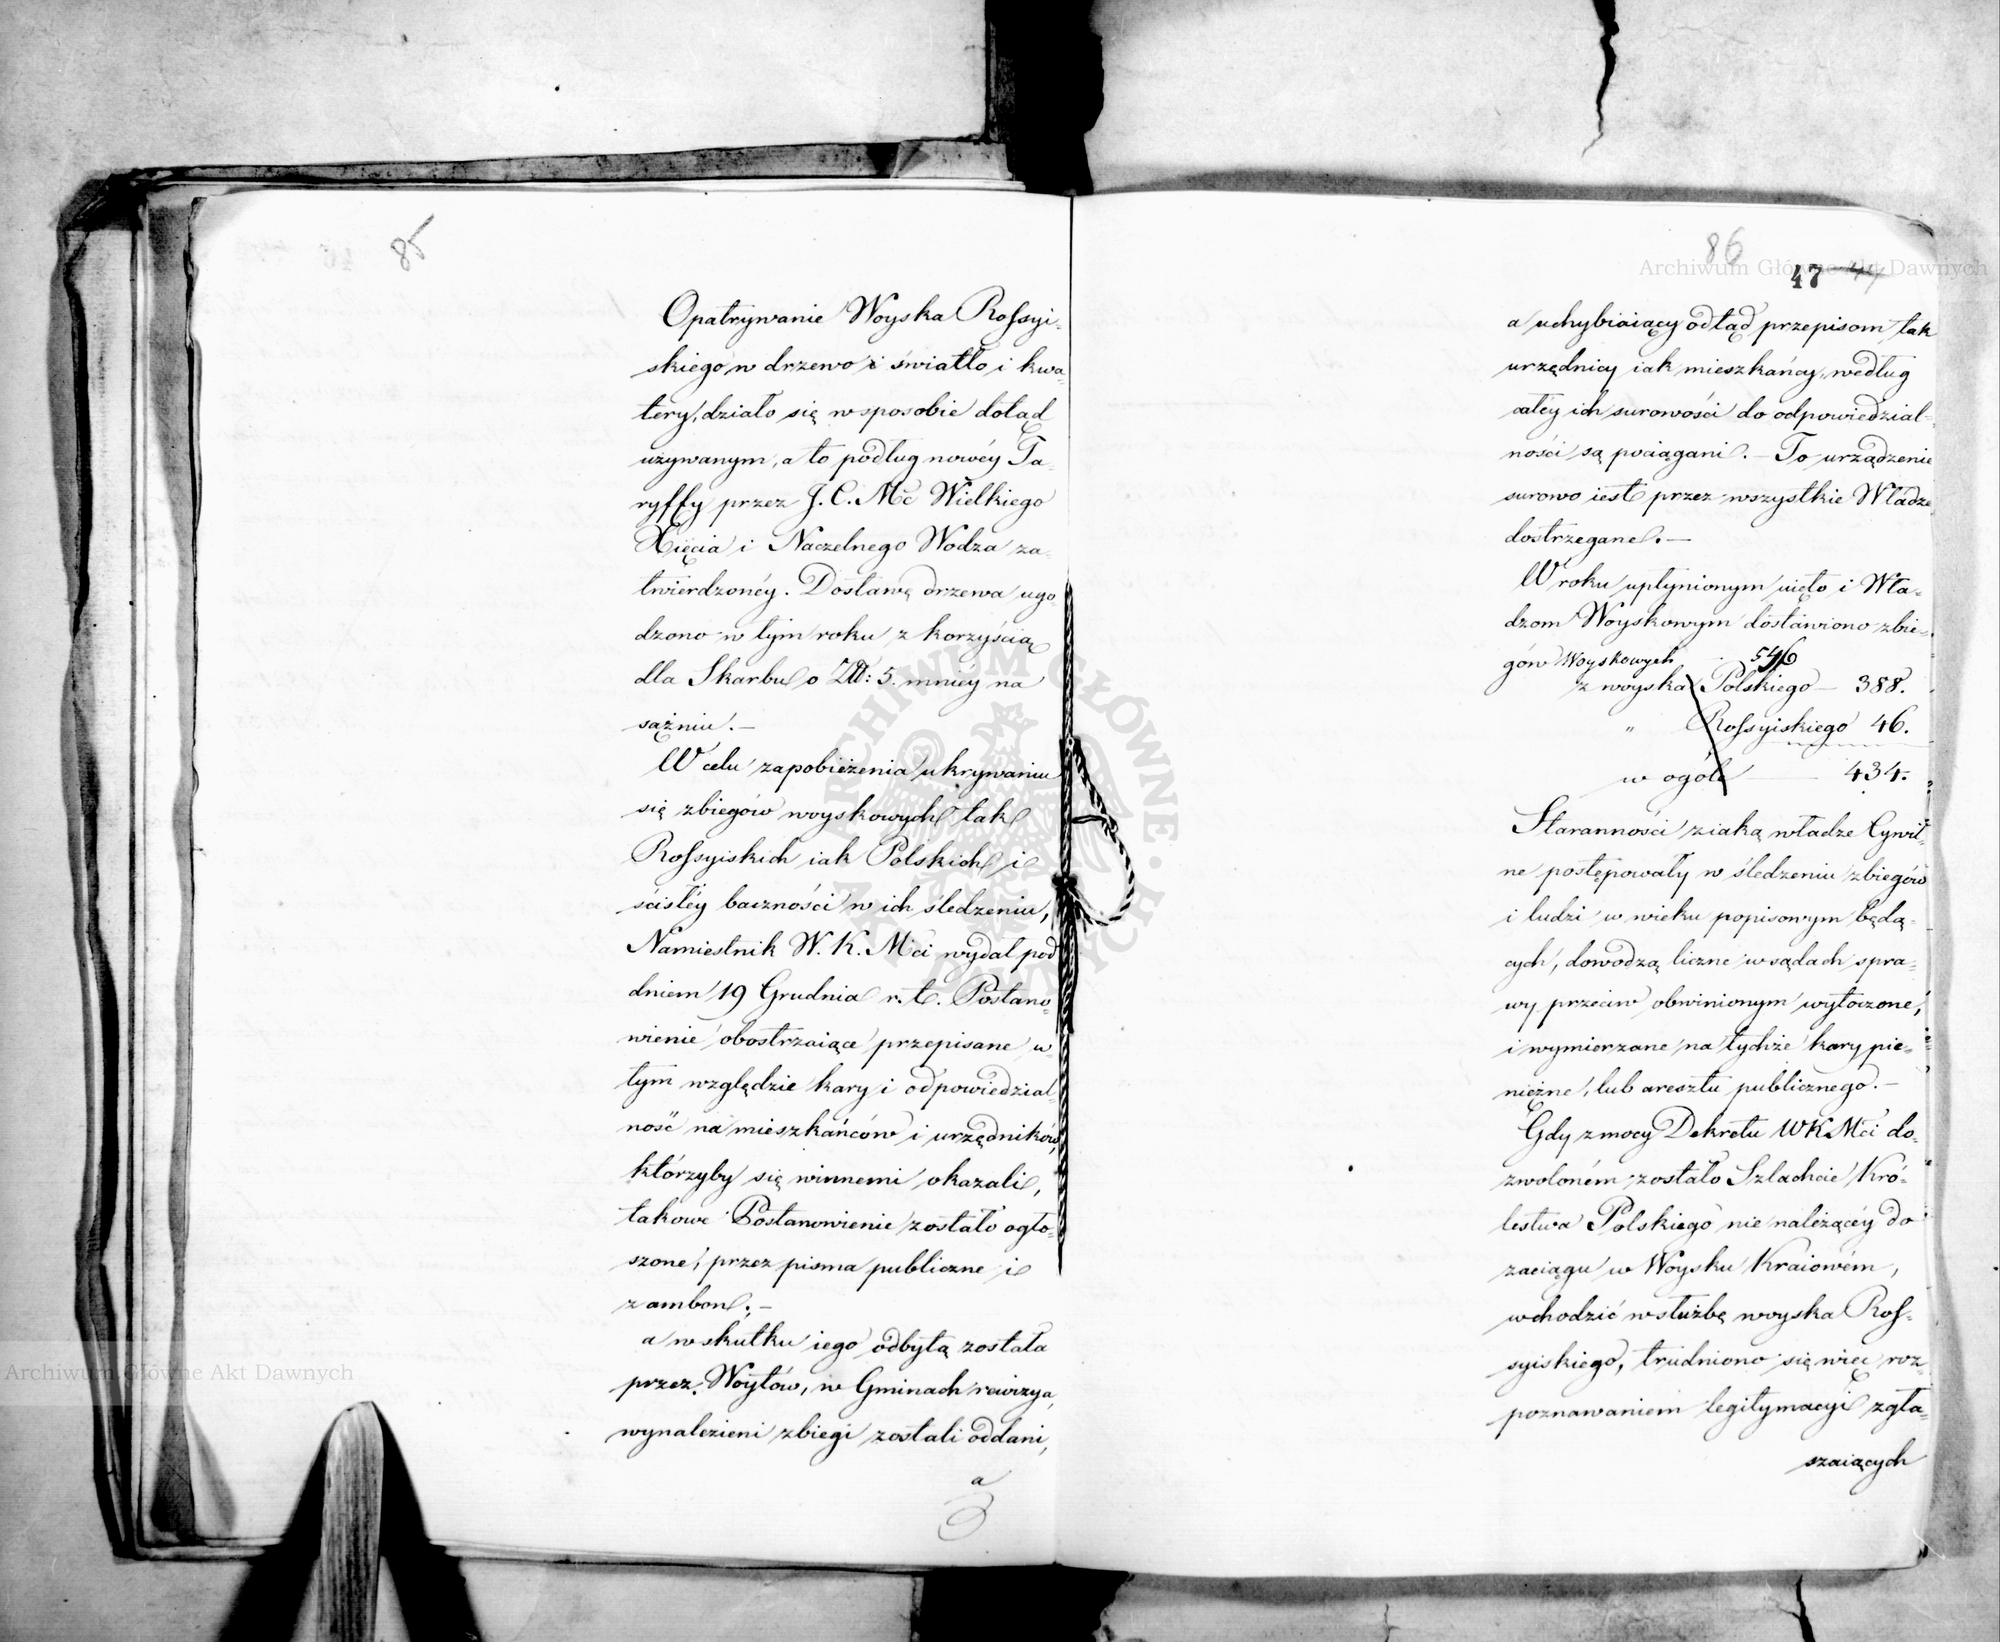 85
Opatrywanie Woyska Rossyi-
skiego w drzewo i światło i kwa-
tery, działo się w sposobie dotąd
używanym, a to podług nowéy Ta-
ryffy przez J. C. Mć Wielkiego
Xięcia i Naczelnego Wodza za-
twierdzonéy. Dostawę drzewa ugo-
dzono w tym roku z korzyścią
dla Skarbu o Złł: 5. mniéy na
sążniu. —
W celu zapobieżenia ukrywaniu
się zbiegów woyskowych tak
Rossyiskich iak Polskich i
ścisłéy baczności w ich śledzeniu,
Namiestnik W. K. Mci wydał pod
dniem 19 Grudnia r. t. Postano-
wienie obostrzaiące przepisane w
tym względzie kary i odpowiedzial-
ność na mieszkańców i urzędników,
którzyby się winnemi okazali,
takowe Postanowienie zostało ogło-
szone, przez pisma publiczne i
z ambon. —
a w skutku iego odbytą została
przez Woytów, w Gminach rewizya,
wynalezieni zbiegi zostali oddani,
a
86
47 44
a uchybiaiący odtąd przepisom tak
urzędnicy iak mieszkańcy, według
całéy ich surowości do odpowiedzial-
ności są pociągani. — To urządzenie
surowo iest przez wszystkie Władze
dostrzegane. —
W roku upłynionym uięto i Wła-
dzom Woyskowym dostawiono zbie-
gów Woyskowych 546
z woyska Polskiego — 388.
" Rossyiskiego 46.
w ogóle — 434.
Staranności z iaką władze Cywil-
ne postępowały w śledzeniu zbiegów
i ludzi w wieku popisowym będą-
cych, dowodzą liczne w sądach spra-
wy przeciw obwinionym wytoczone,
i wymierzane na tychże kary pie-
niężne, lub aresztu publicznego. —
Gdy z mocy Dekretu WKMci do-
zwoloném zostało Szlachcie Kró-
lestwa Polskiego nie należącéy do
zaciągu w Woysku Kraiowém,
wchodzić w służbę woyska Ros-
syiskiego, trudniono się więc roz-
poznawaniem legitymacyi zgła-
szaiących
Archiwum Główne Akt Dawnych
Archiwum Główne Akt Dawnych